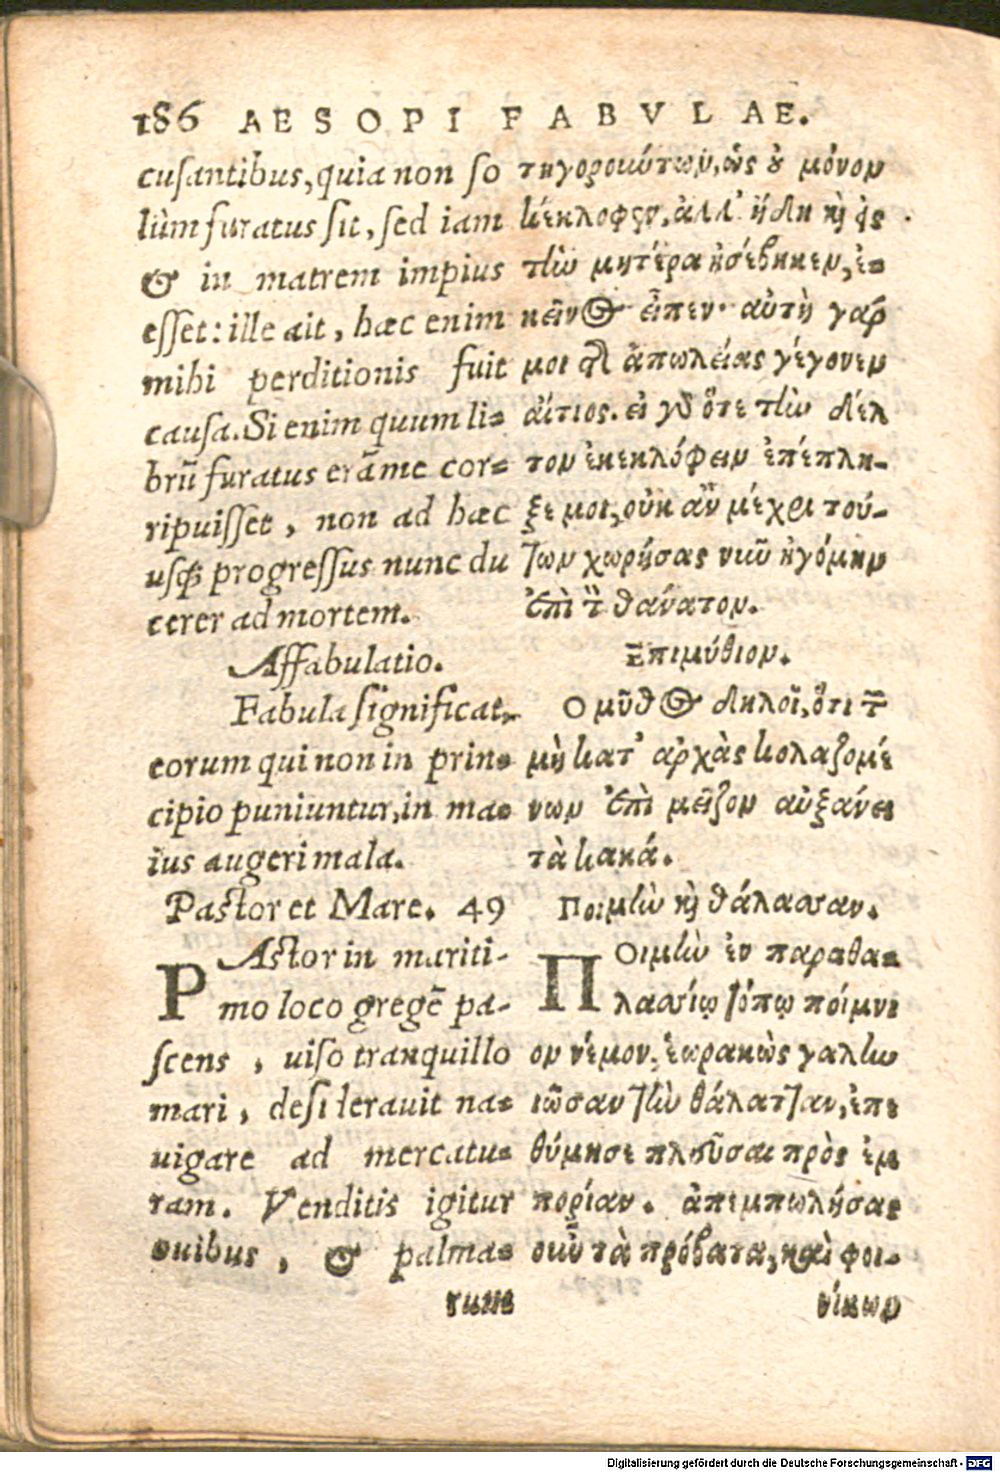 186 AESOPI FABVLAE.
cusantibus, quia non so
lùm furatus sit, sed iam
& in matrem impius
esset: ille ait, hæc enim
mihi perditionis fuit
causa. Si enim quum li-
brũ furatus erã me cor-
ripuisset, non ad hæc
usq; progressus nunc du
cerer ad mortem.
Affabulatio.
Fabula significat,
eorum qui non in prin-
cipio puniuntur, in ma-
ius augeri mala.
Pastor et Mare. 49
PAstor in mariti-
mo loco gregẽ pa-
scens, uiso tranquillo
mari, desiderauit na-
uigare ad mercatu-
ram. Venditis igitur
ouibus, & palma-
rum
τηγορούντων, ὡς ȣ μόνον
κέκλοφεν, ἀλλ' ἤδη κ̀ ἐς
τὼ μητέρα ἠσέβηκεν, ἐ-
κεῖνος εἶπεν· αὐτὴ γάρ
μοι τ῀ ἀπωλείας γέγονεν
αἴτιος. εἰ γὰρ ὅτε τὼ δέλ
τον ἐκεκλόφειν ἐπέπλη-
ξέ μοι, οὐκ ἂν μέχρι τού-
των χωρήσας νιῦ ἠγόμην
ἐπὶ τ̀ θάνατον.
Επιμύθιον.
Ο μῦθος δηλοῖ, ὅτι τ῀
μὴ κατ' ἀρχὰς κολαζομέ
νων ἐπὶ μεῖζον αὐξάνει
τὰ κακά.
Ποιμὼ κ̀ θάλασσαν.
ΠΟιμὼ ἐν παραθα-
λασσίῳ τόπῳ ποίμνι
ον νέμον, ἑωρακὼς γαλὼ
ιῶσαν τὼ θάλατταν, ἐπε
θύμησε πλεῦσαι πρὸς ἐμ
πορίαν. ἀπεμπωλήσας
οὖν τὰ πρόβατα, καὶ φοι-
νίκων
Digitalisierung gefördert durch die Deutsche Forschungsgemeinschaft - DFG